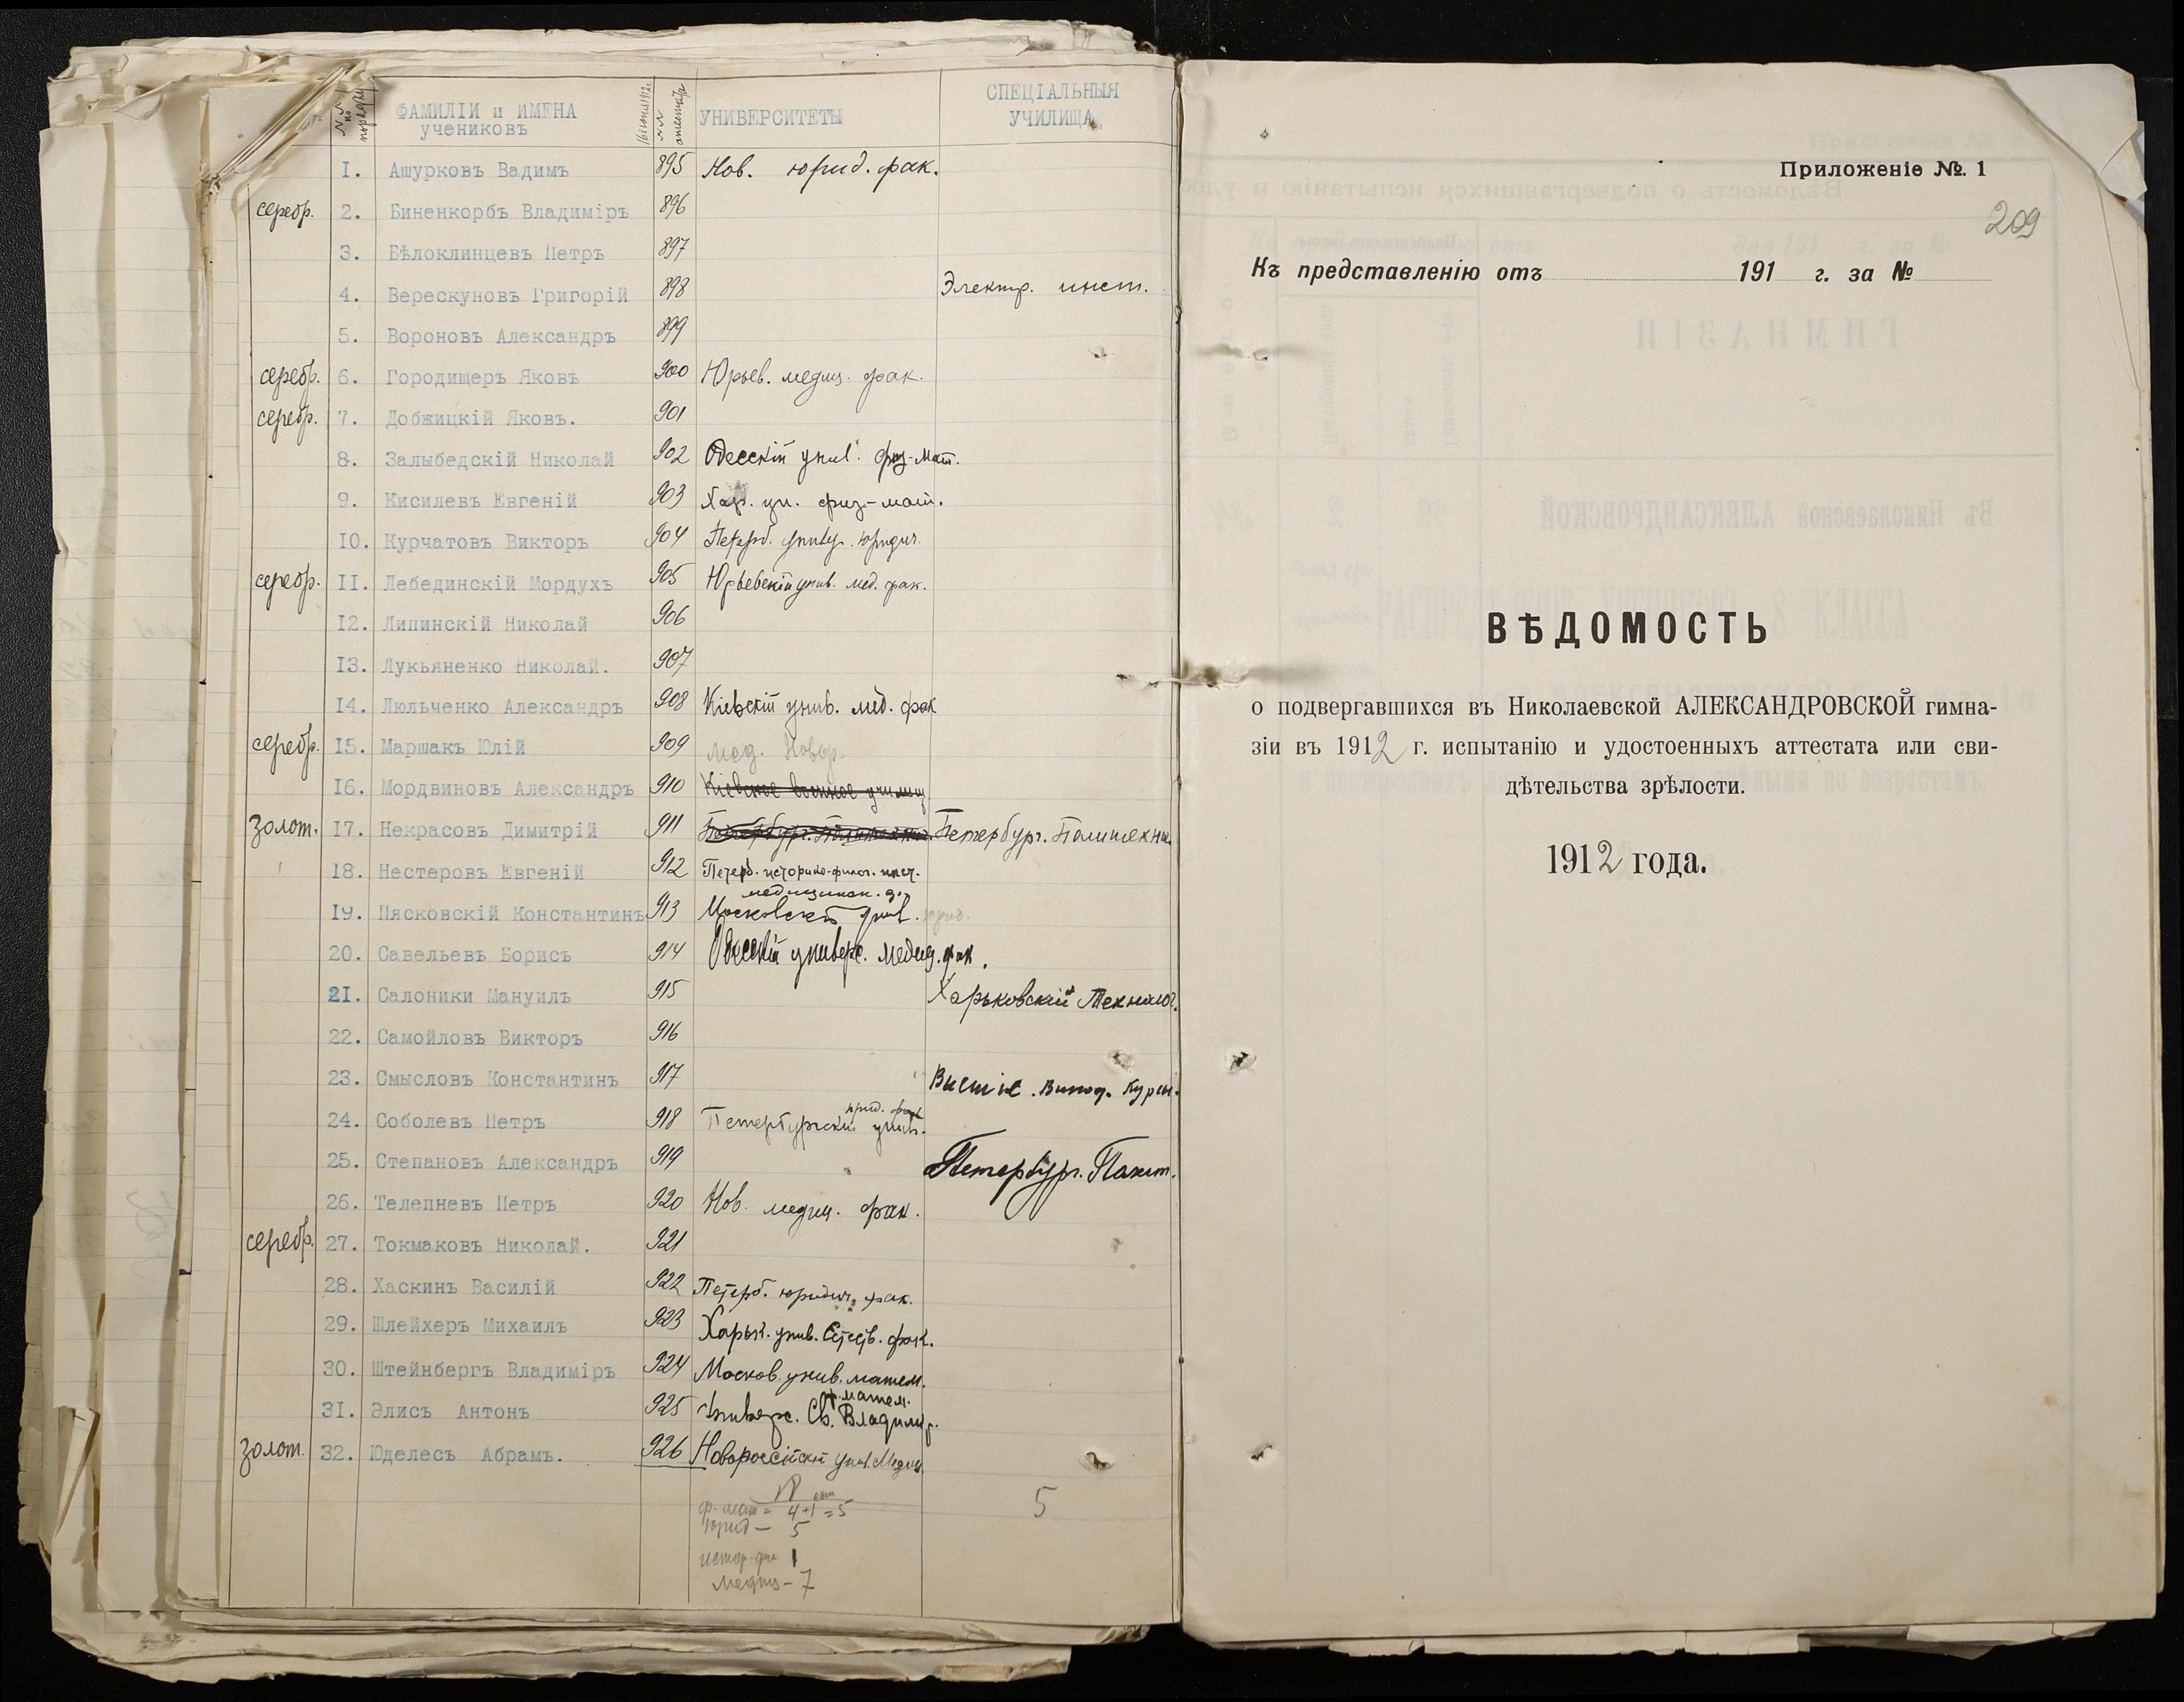 №№ по порядку
ФАМИЛІИ и ИМЕНА
учениковъ
№№
аттестата
УНИВЕРСИТЕТЫ
СПЕЦІАЛЬНЫЯ
УЧИЛИЩА
I. Ашурковъ Вадимъ 895 Нов. юрид. фак.
серебр. 2. Биненкорбъ Владиміръ 896
3. Бѣлоклинцевъ Петръ 897
4. Верескуновъ Григорій 898 Электр. инст.
5. Вороновъ Александръ 899
серебр. 6. Городищеръ Яковъ 900 Юрьев. медиц. фак.
серебр. 7. Добжицкій Яковъ. 901
8. Залыбедскій Николай 902 Одесскій унив. физ-мат.
9. Кисилевъ Евгеній 903 Хар. ун. физ-мат.
IO. Курчатовъ Викторъ 904 Петерб. унивр. юридич.
серебр. II. Лебединскій Мордухъ 905 Юрьевскій унив. мед. фак.
I2. Липинскій Николай 906
I3. Лукьяненко Николай. 907
I4. Люльченко Александръ 908 Кіевскій унив. мед. фак
серебр. I5. Маршакъ Юлій 909 мед. Новор.
I6. Мордвиновъ Александръ 910 Кіевское военное училищ
золот. I7. Некрасовъ Димитрій 911 Петербург. Политехник. Петербург. Политехни
I8. Нестеровъ Евгеній 912 Петерб. историко-филол. инст.
медицинск. ф.
I9. Пясковскій Константинъ 913 Московскій унив. юрид.
20. Савельевъ Борисъ 914 Одесскій универс. медиц. фак.
2I. Салоники Мануилъ 915 Харьковскій Технолог.
22. Самойловъ Викторъ 916
23. Смысловъ Константинъ 917 Высшіе. Винод. Курсы.
юрид. фак
24. Соболевъ Петръ 918 Петербургскій унив.
25. Степановъ Александръ 919 Петербург. Полит.
26. Телепневъ Петръ 920 Нов. медиц. фак.
серебр. 27. Токмаковъ Николай. 921
28. Хаскинъ Василій 922 Петерб. юридич. фак.
29. Шлейхеръ Михаилъ 923 Харьк. унив. Естеств. фак.
30. Штейнбергъ Владиміръ 924 Москов. унив. матем.
ф. матем.
3I. Элисъ Антонъ 925 Универс. Св. Владимір.
золот. 32. Юделесъ Абрамъ. 926 Новороссійскій унив. Медиц.
ф-мат = 4+1=5
юрид — 5
истор-фил 1
медиц - 7
5
Приложеніе №. 1
209
Къ представленію отъ 191 г. за №
ВѢДОМОСТЬ
о подвергавшихся въ Николаевской АЛЕКСАНДРОВСКОЙ гимна-
зіи въ 1912 г. испытанію и удостоенныхъ аттестата или сви-
дѣтельства зрѣлости.
1912 года.